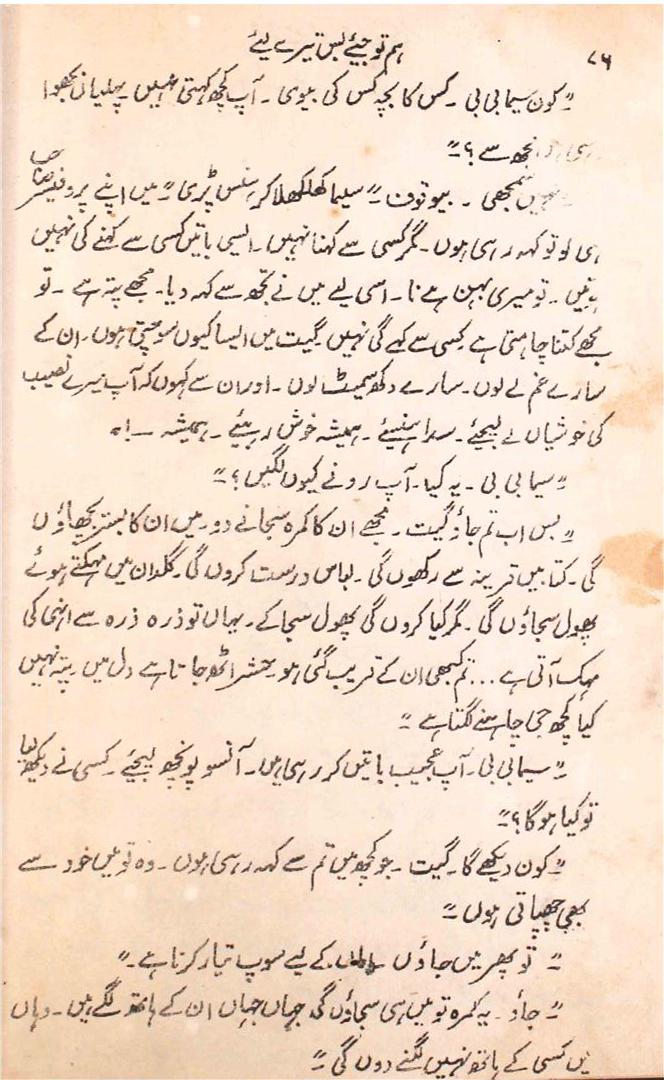 ۷۶ ہم تو جیئے بس تیرے لیئے
”کون سیما بی بی۔ کس کا بچہ کس کی بیوی۔ آپ کچھ کہتی نہیں پہلیاں بجھوا
رہی مجھ سے؟“
نہیں سمجھی۔ بیوقوف“ سیما کھلکھلا کر ہنس پڑی“ میں اپنے پروفیسر صاحب
ہی کو تو کہہ رہی ہوں۔ مگر کسی سے کہنا نہیں۔ ایسی باتیں کسی سے کہنے کی نہیں
ہوتیں۔ تو میری بہن ہے نا۔ اسی لیے میں نے تجھ سے کہہ دیا۔ مجھے پتہ ہے۔ تو
مجھے کتنا چاہتی ہے کسی سے کہے گی نہیں۔ گیت میں ایسا کیوں سوچتی ہوں۔ ان کے
سارے غم لے لوں۔ سارے دکھ سمیٹ لوں۔ اور ان سے کہوں کہ آپ میرے نصیب
کی خوشیاں لے لیجیئے۔ سدا ہنسیئے۔ ہمیشہ خوش رہیئے۔ ہمیشہ ۔۔۔!“
”سیما بی بی۔ یہ کیا۔ آپ رونے کیوں لگیں؟“
”بس اب تم جاؤ گیت۔ مجھے ان کا کمرہ سجانے دو۔ میں ان کا بستر بچھاؤں
گی۔ کتابیں قرینہ سے رکھوں گی۔ لباس درست کروں گی۔ گلدان میں مہکتے ہوئے
پھول سجاؤں گی۔ مگر کیا کروں گی پھول سجا کے۔ یہاں تو ذرہ ذرہ سے انہی کی
مہک آتی ہے... تم کبھی ان کے قریب گئی ہو۔ حشر اٹھ جاتا ہے دل میں۔ پتہ نہیں
کیا کچھ جی چاہنے لگتا ہے“
”سیما بی بی۔ آپ عجیب باتیں کر رہی ہیں۔ آنسو پونچھ لیجیئے۔ کسی نے دیکھ لیا
تو کیا ہوگا؟“
”کون دیکھے گا۔ گیت۔ جو کچھ میں تم سے کہہ رہی ہوں۔ وہ تو میں خود سے
بھی چھپاتی ہوں“
”تو پھر میں جاؤں کے لیے سوپ تیار کرنا ہے۔“
”جاؤ۔ یہ کمرہ تو میں ہی سجاؤں گی جہاں جہاں ان کے ہاتھ لگے ہیں۔ وہاں
میں کسی کے ہاتھ نہیں لگنے دوں گی“